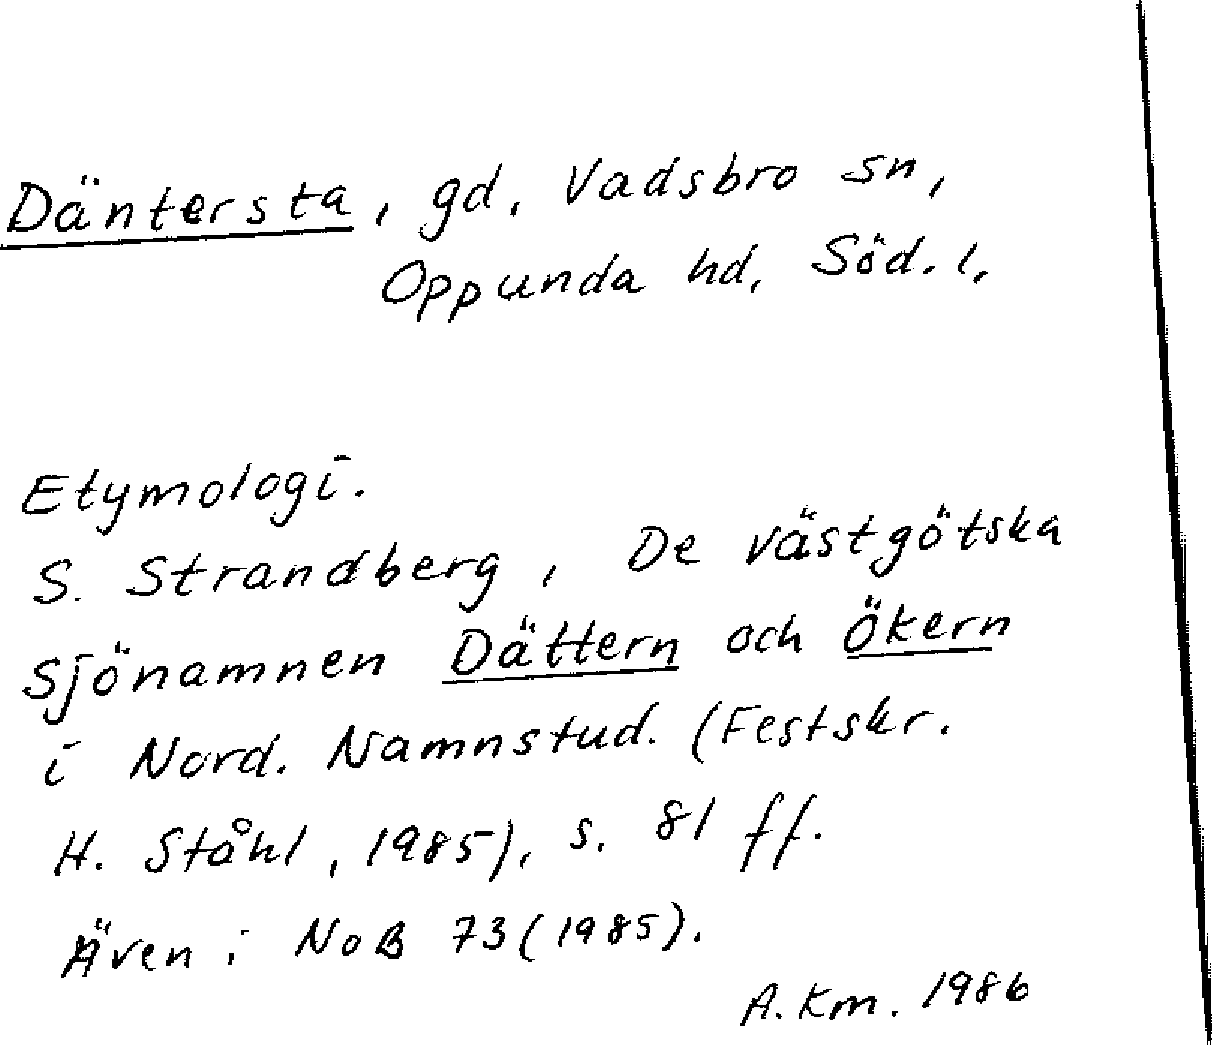 Däntersta, gd, Vadsbro sn,
Oppunda hd, Söd. l,
Etymologi.
S. Strandberg, De västgötska
sjönamnen Dättern och Ökern
i Nord. Namnstud. (Festskr.
H. Ståhl, 1985), s. 81 ff.
Även i NoB 73(1985).
A. Km. 1986